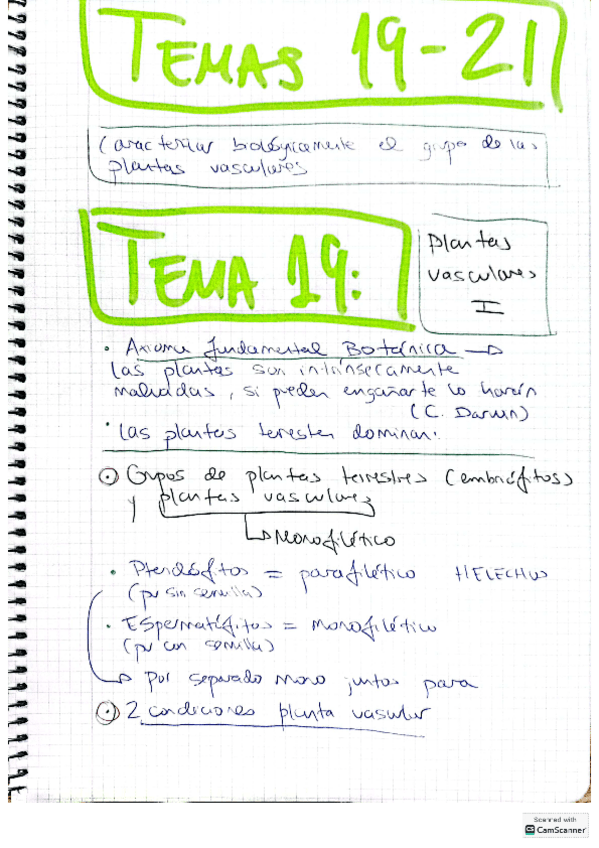 TEMAS 19-21
Caracterizar biológicamente el grupo de las
plantas vasculares
TEMA 19:
Plantas
vasculares
I
· Axioma fundamental Botánica →
Las plantas son intrínsecamente
malvadas, si pueden engañarte lo harán
(C. Darwin)
· Las plantas terrestres dominan:
⊙ Grupos de plantas terrestres (embriófitos)
y plantas vasculares
↳ Monofilético
· Pteridófitos = parafilético HELECHOS
(pv sin semilla)
· Espermatófitos = Monofilético
(pv con semilla)
↳ Por separado mono juntos para
⊙ 2 condiciones planta vascular
Scanned with
CS CamScanner